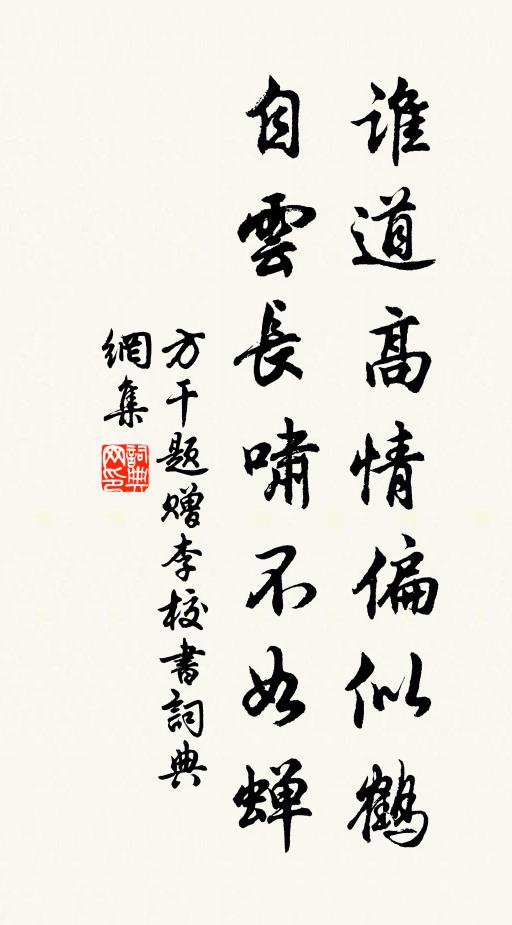 誰道高情偏似鶴
自雲長嘯不如蟬
方干题赠李校書詞典
網集
詞典
网印